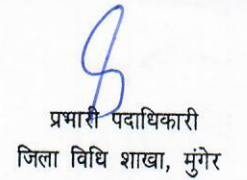 प्रभारी पदाधिकारी
जिला विधि शाखा, मुंगेर